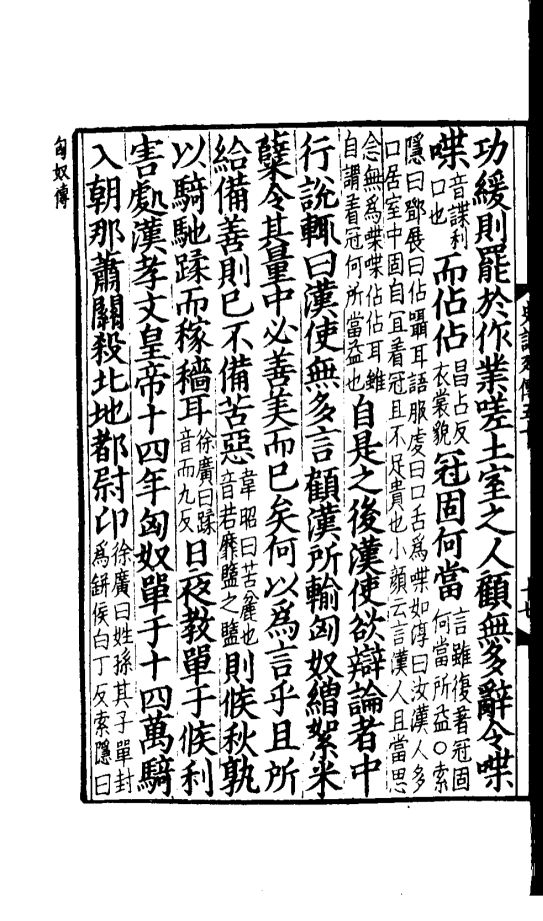 功緩則罷於作業嗟土室之人顧無多辭令喋
喋音諜利口也而佔佔昌占反衣裳貌冠固何當言雖復著冠固何當所益○索
隱曰鄧展曰佔囁耳語服虔曰口舌爲喋如淳曰汝漢人多
口居室中固自宜着冠且不足貴也小顔云言漢人且當思
念無爲喋喋佔佔耳雖
自謂着冠何所當益也自是之後漢使欲辯論者中
行說輒曰漢使無多言顧漢所輸匈奴繒絮米
糵令其量中必善美而已矣何以爲言乎且所
給備善則已不備苦惡韋昭曰苦麄也音若靡盬之盬則候秋孰
以騎馳蹂而稼穡耳徐廣曰蹂音而九反日夜教單于候利
害處漢孝文皇帝十四年匈奴單于十四萬騎
入朝那蕭關殺北地都尉卬徐廣曰姓孫其子單封爲缾侯白丁反索隱曰
匈奴傳